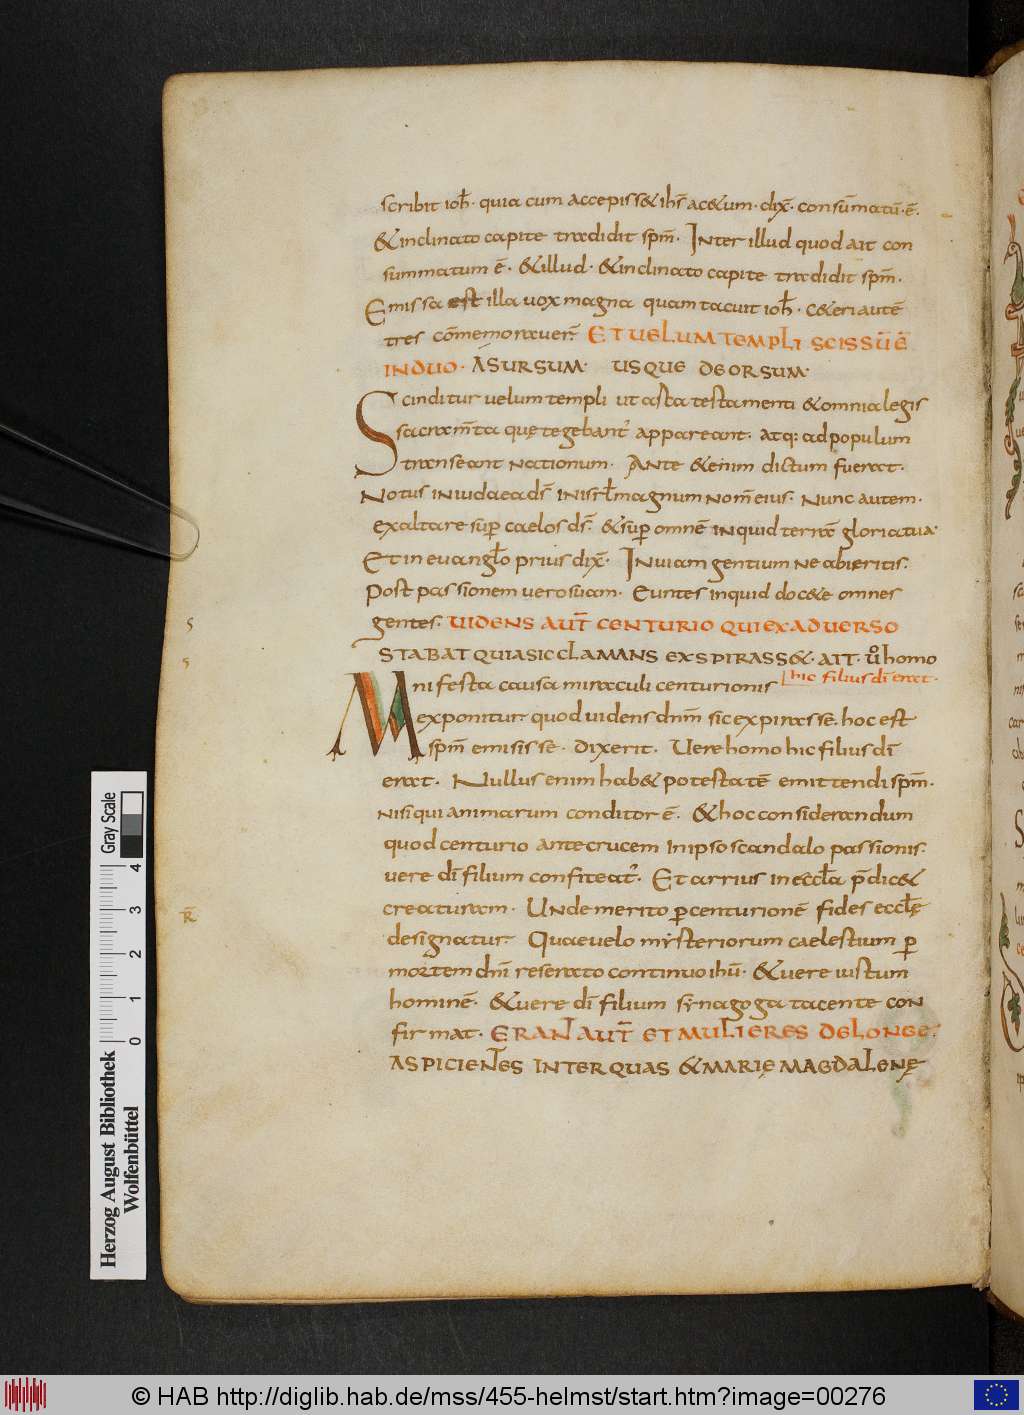 scribit ioh̄· quia cum accepiss& ih̄s ac&um· dix̄· consūmatū· ē·
&inclinato capite tradidit sp̄m· Inter illud quod ait con
summatum ē· &illud· &inclinato capite tradidit sp̄m·
Emissa est illa vox magna quam tacuit ioh̄· c&eri autē
tres cōmemoraver̄· ET UELUM TEMPLI SCISSŪ Ē
IN DUO· A SURSUM· USQUE DEORSUM·
Scinditur uelum templi ut asta testamenti &omnia legis
sacram̄ta quę tegebant᷑ appareant· atq: ad populum
transeant nationum· Ante &enim dictum fuerat·
Notus in iudaea d̄s in isrł magnum nom̄ eius· Nunc autem·
exaltare sup̱ caelos d̄s· &sup̱ omnē inquid terrā gloria tua·
Et in evangło prius dix̄· In viam gentium ne abieritis·
Post passionem vero suam· Euntes inquid doc&e omnes
gentes· UIDENS AUT̄ CENTURIO QUI EX ADUERSO
STABAT QUIA SIC CLAMANS EXSPIRASS&· AIT· ůhomo
hic filius dī erat·
Manifesta causa miraculi centurionis
exponitur quod uidens dn̄m sic expirasse· hoc est
sp̄m emisisse· dixerit· Uere homo hic filius dī
erat· Nullus enim hab& potestatē emittendi sp̄m·
nisi qui animarum conditor ē· &hoc considerandum
quod centurio ante crucem in ipso scandalo passionis·
vere dī filium confiteat᷑· Et arrius in eccła p̄dic&
creaturam· Unde merito p̱ centurionē fides eccłę
designatur· Quae velo mysteriorum caelestium p̱
mortem dn̄i reserato continuo ihū· &vere iustum
hominē· &vere dī filium synagoga tacente con
firmat· ERANT AUT̄ ET MULIERES DE LONGE·
ASPICIENTES INTER QUAS &MARIĘ MAGDALENĘ
5
5
R̄
Herzog August Bibliothek
Wolfenbüttel
0 1 2 3 4
Gray Scale
© HAB http://diglib.hab.de/mss/455-helmst/start.htm?image=00276